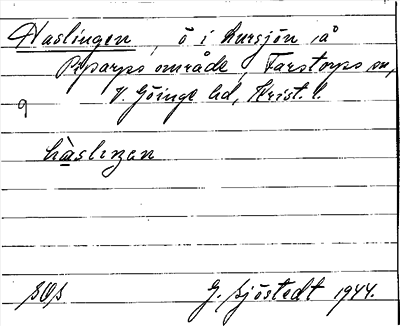 Haslingen, ö i Lursjön å
Reparps område, Farstorps sn,
V. Göinge hd, Krist. l.
9
hàslingen
SOS G. Sjöstedt 1944.